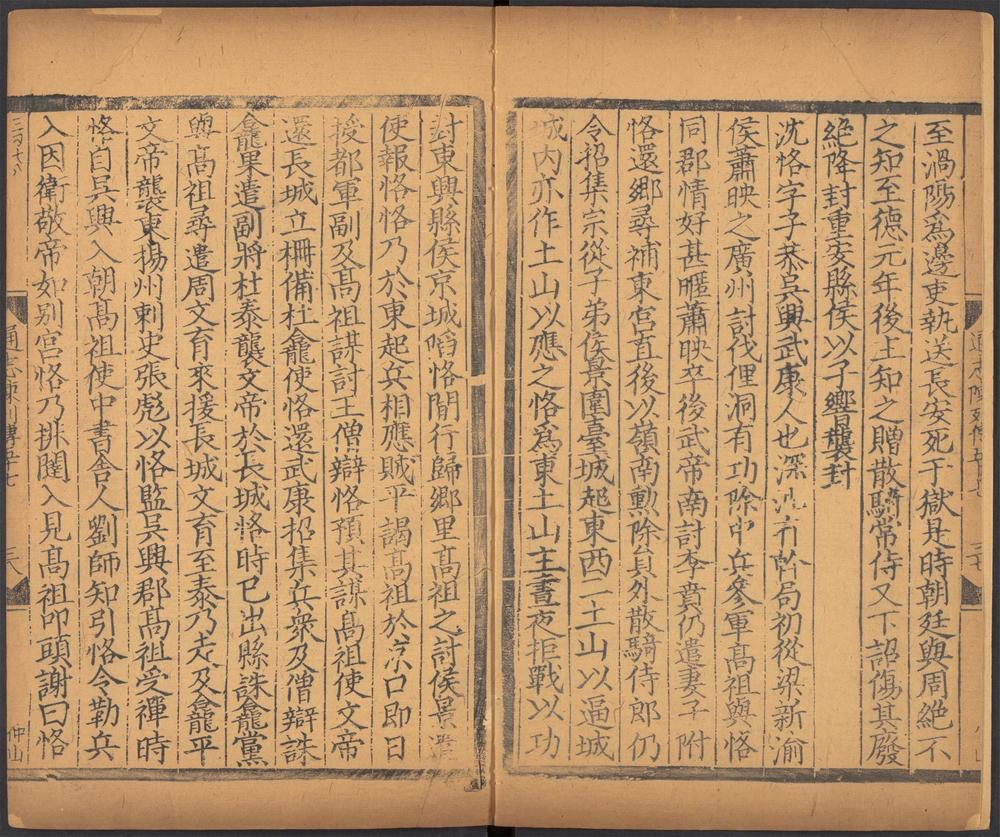 至渦陽為邊吏執送長安死于獄是時朝廷與周絕不
之知至德元年後主知之贈散騎常侍又下詔傷其廢
絕降封重安縣侯以子響襲封
沈恪字子恭吳興武康人也深沉有幹局初從梁新渝
侯蕭映之廣州討伐俚洞有功除中兵參軍高祖與恪
同郡情好甚暱蕭映卒後武帝南討李賁仍遣妻子附
恪還鄉尋補東宮直後以嶺南勲除員外散騎侍郎仍
令招集宗從子弟侯景圍臺城起東西二土山以逼城
城内亦作土山以應之恪為東土山主晝夜拒戰以功
封東興縣侯京城陷恪間行歸鄉里高祖之討侯景遣
使報恪恪乃於東起兵相應賊平謁高祖於京口即日
授都軍副及高祖謀討王僧辯恪預其謀高祖使文帝
還長城立柵備杜龕使恪還武康招集兵衆及僧辯誅
龕果遣副將杜泰襲文帝於長城恪時已出縣誅龕黨
與高祖尋遣周文育來援長城文育至泰乃走及龕平
文帝襲東揚州刺史張彪以恪監吳興郡高祖受禪時
恪自吳興入朝高祖使中書舍人劉師知引恪令勒兵
入因衛敬帝如别宮恪乃排闥入見高祖叩頭謝曰恪